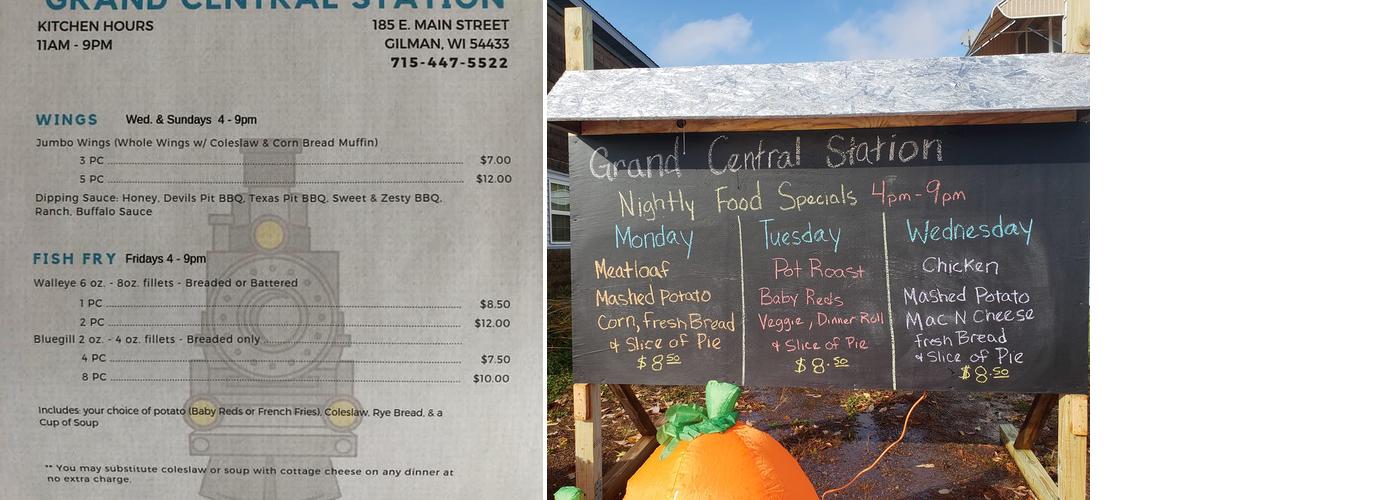 GRAND CENTRAL STATION
KITCHEN HOURS
11AM - 9PM
185 E. MAIN STREET
GILMAN, WI 54433
715-447-5522
WINGS Wed. & Sundays 4 - 9pm
Jumbo Wings (Whole Wings w/ Coleslaw & Corn Bread Muffin)
3 PC $7.00
5 PC $12.00
Dipping Sauce: Honey, Devils Pit BBQ, Texas Pit BBQ, Sweet & Zesty BBQ,
Ranch, Buffalo Sauce
FISH FRY Fridays 4 - 9pm
Walleye 6 oz. - 8oz. fillets - Breaded or Battered
1 PC $8.50
2 PC $12.00
Bluegill 2 oz. - 4 oz. fillets - Breaded only
4 PC $7.50
8 PC $10.00
Includes: your choice of potato (Baby Reds or French Fries), Coleslaw, Rye Bread, & a
Cup of Soup
** You may substitute coleslaw or soup with cottage cheese on any dinner at
no extra charge.
Grand Central Station
Nightly Food Specials 4pm-9pm
Monday
Meatloaf
Mashed Potato
Corn, fresh Bread
& Slice of Pie
$8.50
Tuesday
Pot Roast
Baby Reds
Veggie, Dinner Roll
& Slice of Pie
$8.50
Wednesday
Chicken
Mashed Potato
Mac N Cheese
fresh Bread
& Slice of Pie
$8.50